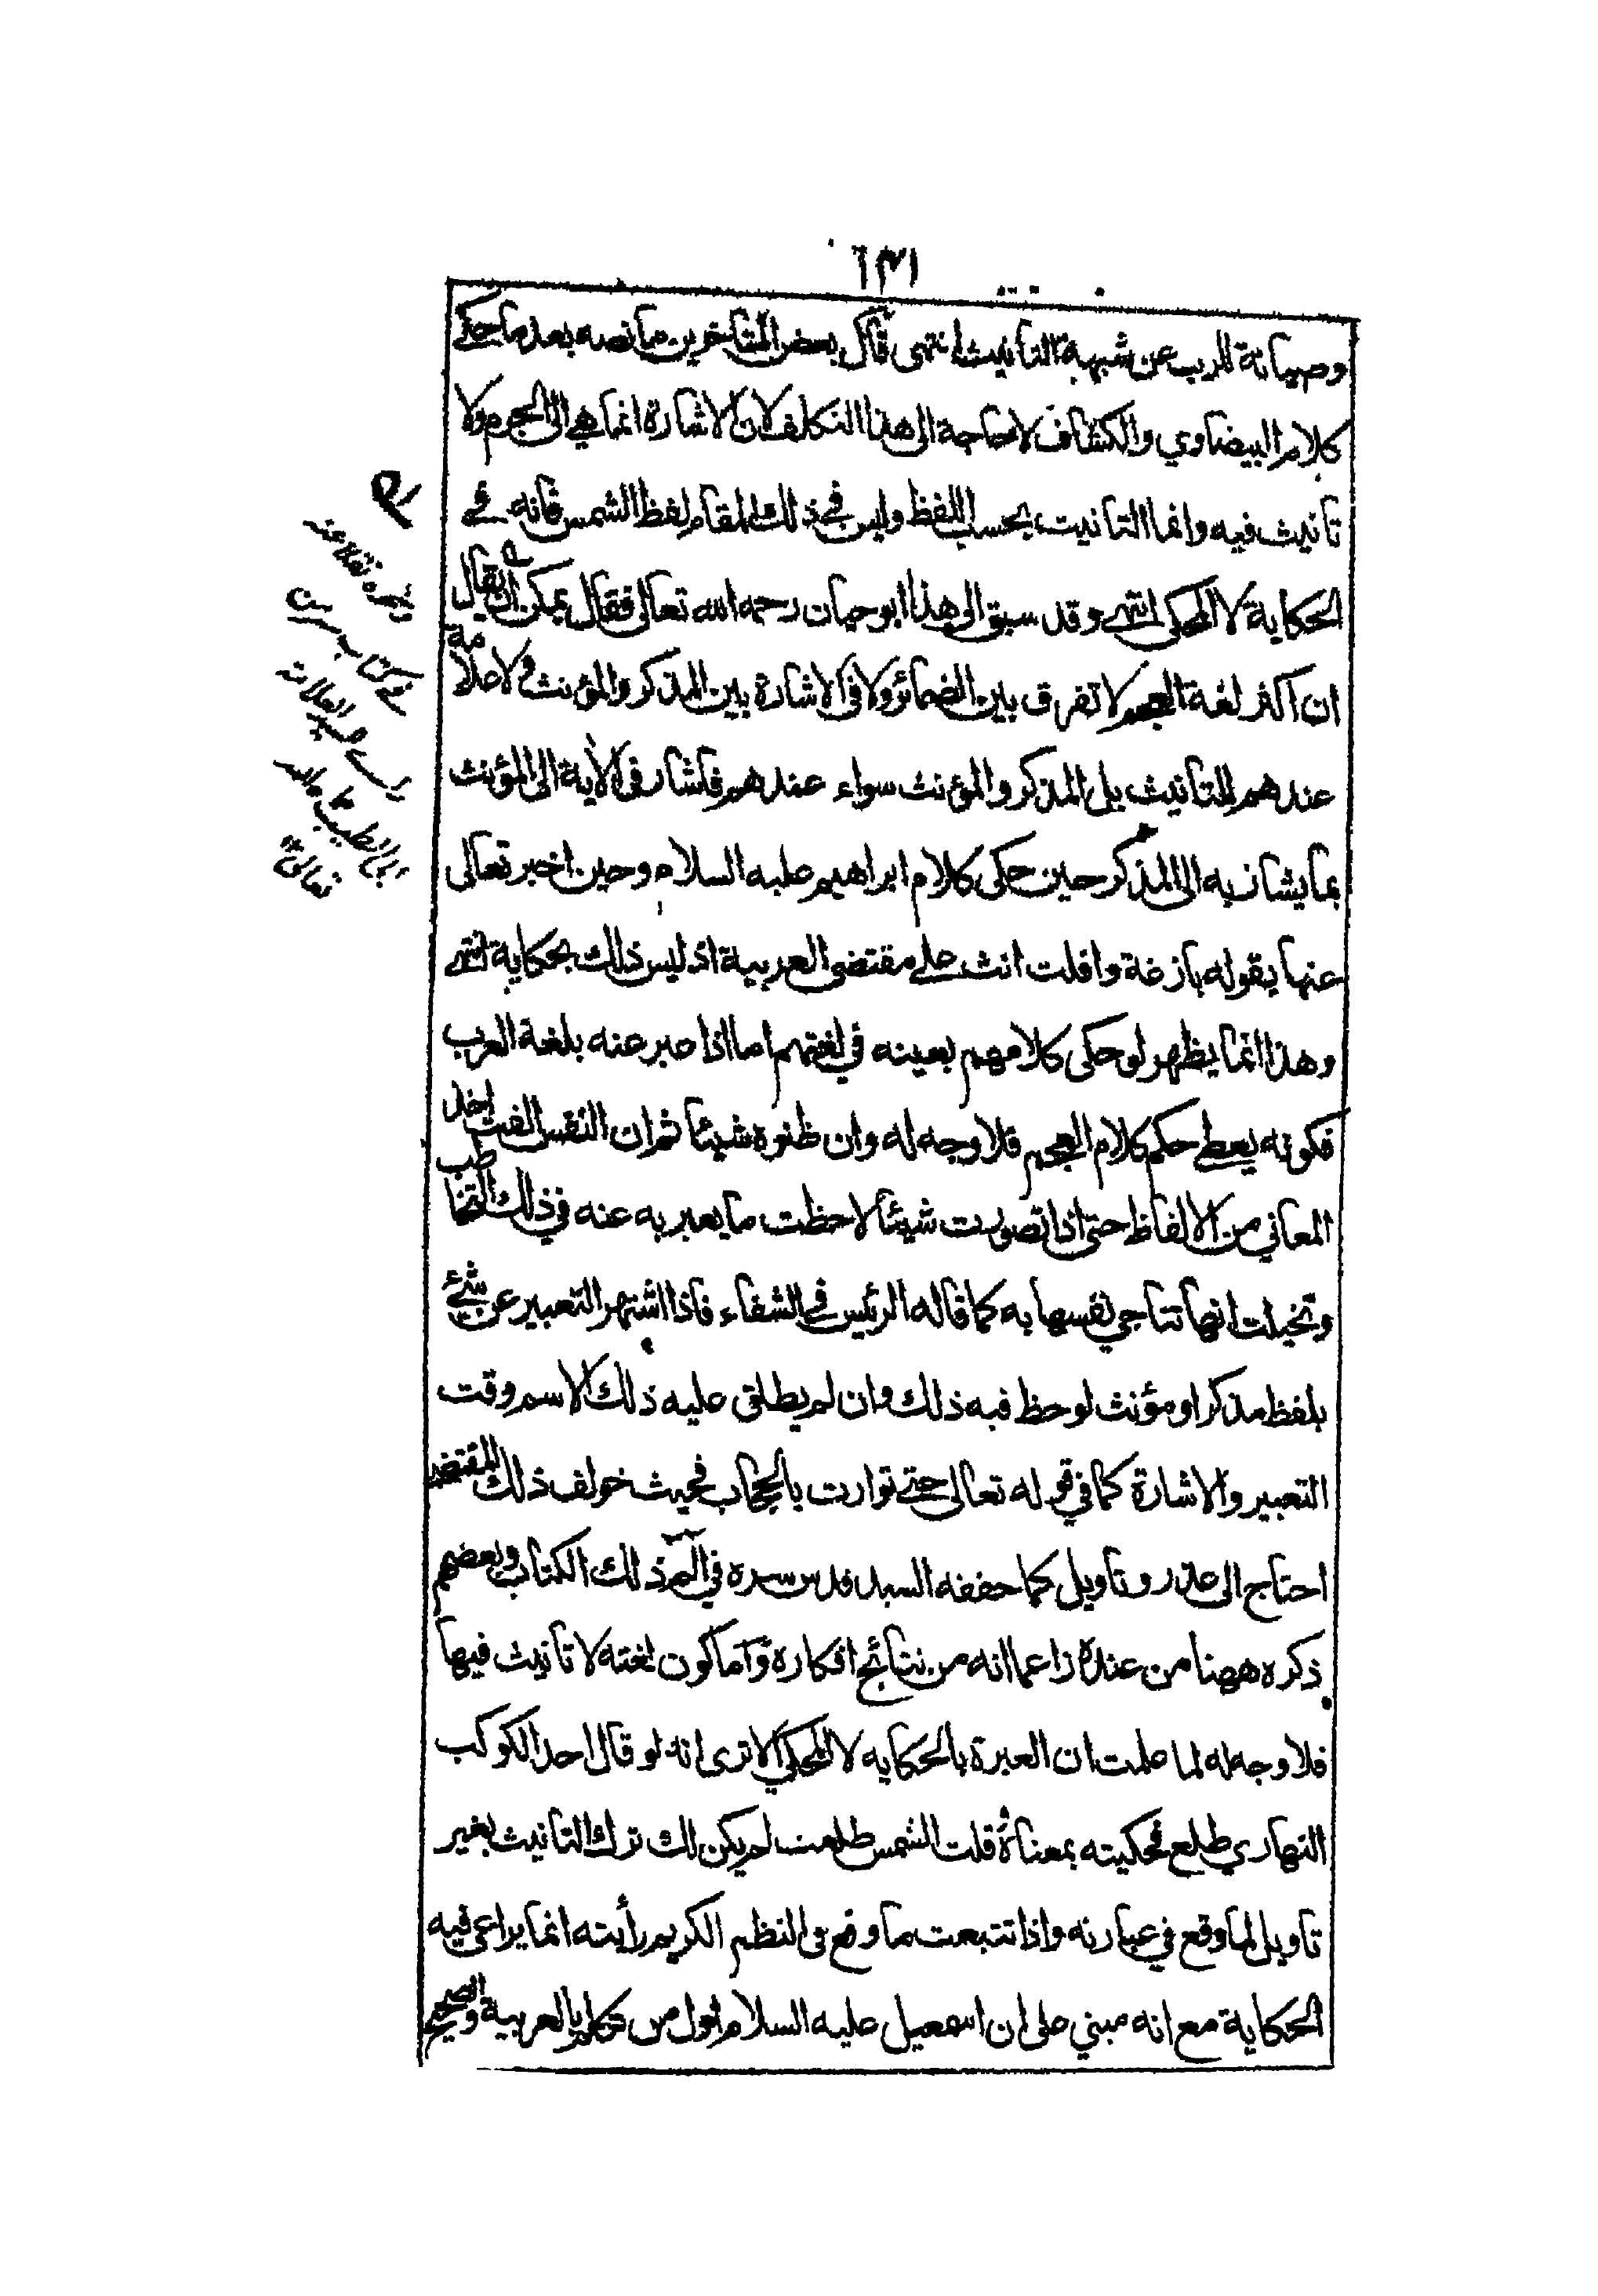 ١٣١
وصيانة للرب عن شبهة التانيث انتهى قال بعض المتاخرين ما نصه بعد ما حكى
كلام البيضاوي والكشاف لا حاجة الى هذا التكلف لان الاشارة انما هي الى الجرم ولا
تانيث فيه وانما التانيث بحسب اللفظ وليس في ذلك المقام لفظ الشمس فانه في
الحكاية لا المحكى انتهى وقد سبق الى هذا ابو حيان رحمه الله تعالى فقال يمكن ان يقال
ان اكثر لغة العجم لا تفرق بين الضمائر ولا في الاشارة بين المذكر والمؤنث ولا علامة
عندهم للتانيث بل المذكر والمؤنث سواء عندهم فاشار في الآية الى المؤنث
بما يشار به الى المذكر حين حكى كلام ابراهيم عليه السلام وحين اخبر تعالى
عنها بقوله بازغة وافلت انث على مقتضى العربية اذ ليس ذلك بحكاية انتهى
وهذا انما يظهر لو حكى كلامهم بعينه في لغتهم اما اذا عبر عنه بلغة العرب
فكونه يعطى حكم كلام العجم فلا وجه له وان ظنوه شيئا ثم ان النفس الفت اخذ
المعاني من الالفاظ حتى اذا تصورت شيئا لاحظت ما يعبر به عنه في ذلك التخاطب
وتخيلت انها تناجي نفسها به كما قاله الرئيس في الشفاء فاذا اشتهر التعبير عن شئ
بلفظ مذكر او مؤنث لوحظ فيه ذلك وان لم يطلق عليه ذلك الاسم وقت
التعبير والاشارة كما في قوله تعالى حتى توارت بالحجاب فحيث خولف ذلك المقتضى
احتاج الى عذر وتاويل كما حققه السيد قدس سره في الم ذلك الكتاب وبعضهم
ذكره ههنا من عنده زاعما انه من نتائج افكاره واما كون لغته لا تانيث فيها
فلا وجه له لما علمت ان العبرة بالحكايه لا المحكي الا ترى انه لو قال احد الكوكب
النهاري طلع فحكيته بمعناه قلت الشمس طلعت لم يكن لك ترك التانيث بغير
تاويل لما وقع في عبارته واذا تتبعت ما وقع في النظم الكريم رأيته انما يراعى فيه
الحكاية مع انه مبني على ان اسمعيل عليه السلام اول من تكلم بالعربية والصحيح
نقلا عنه
كتاب
السيد العلامة
الطيب
تعالى